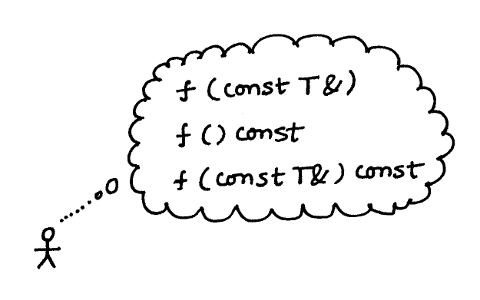 f (const T&)
f () const
f (const T&) const